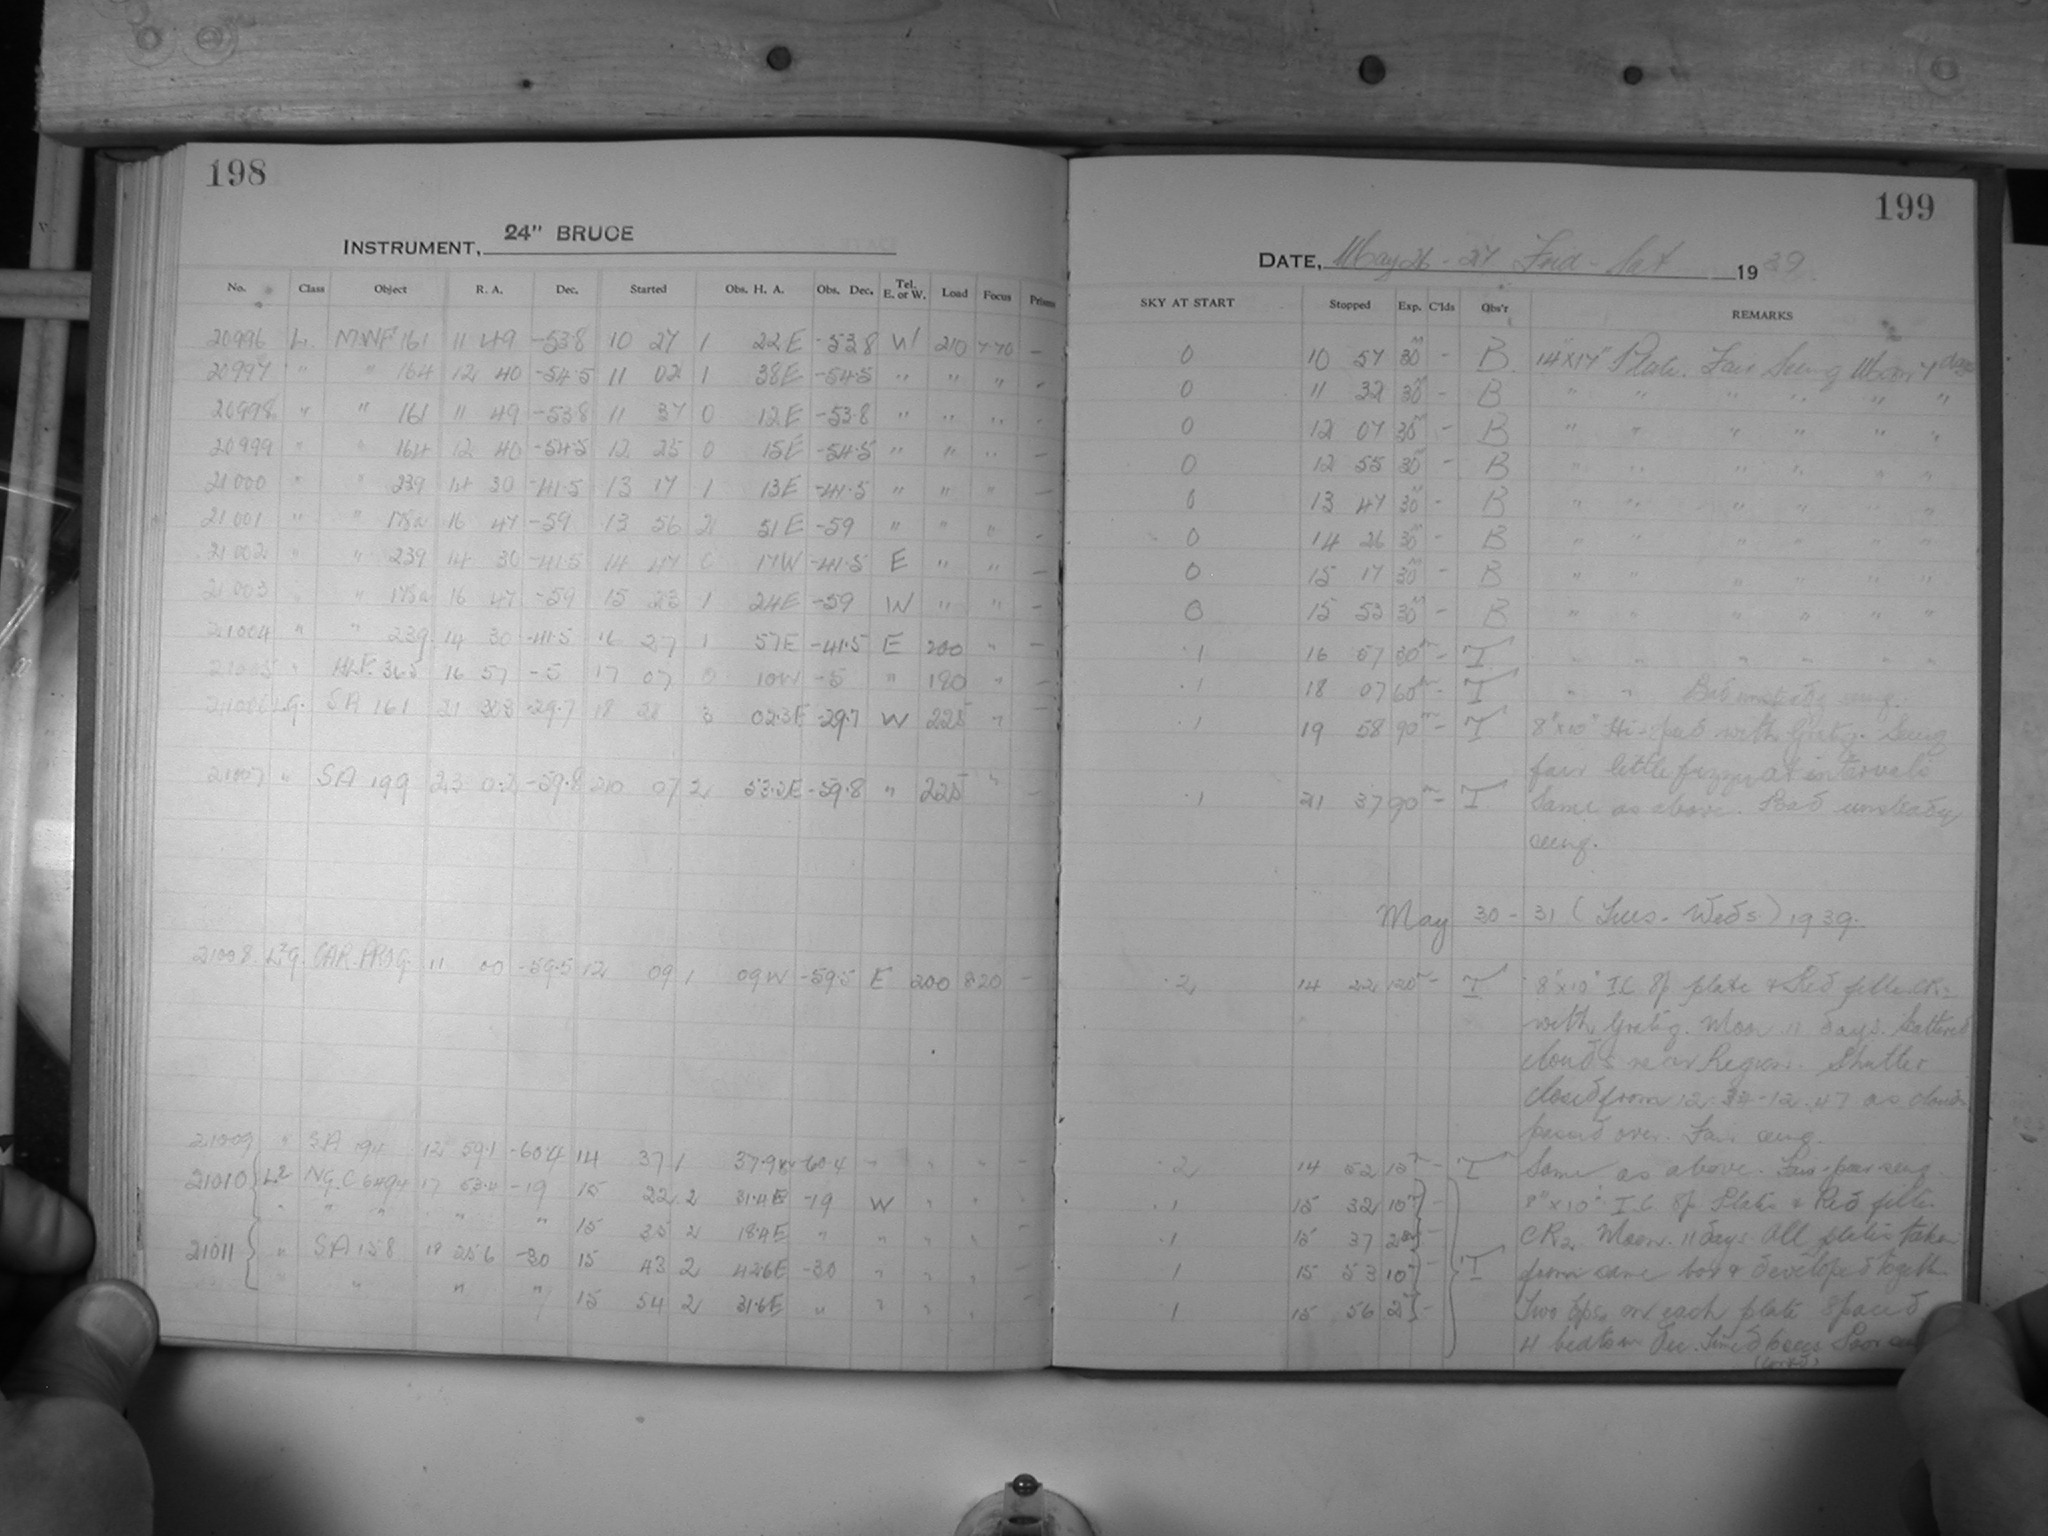 198
INSTRUMENT, 24" BRUCE
No. Class Object R. A. Dec. Started Obs. H. A. Obs. Dec. Tel. E. or W. Load Focus Prisms
20996 L. MWF 161 11 49 -53.8 10 27 1 22E -53.8 W 210 7.70 -
20997 " " 164 12 40 -54.5 11 02 1 38E -54.5 " " " -
20998 " " 161 11 49 -53.8 11 37 0 12E -53.8 " " " -
20999 " " 164 12 40 -54.5 12 25 0 15E -54.5 " " " -
21000 " " 239 14 30 -41.5 13 17 1 13E -41.5 " " " -
21001 " " 178a 16 47 -59 13 56 2 51E -59 " " " -
21002 " " 239 14 30 -41.5 14 47 0 17W -41.5 E " " -
21003 " " 178a 16 47 -59 15 23 1 24E -59 W " " -
21004 " " 239 14 30 -41.5 16 27 1 57E -41.5 E 200 " -
21005 " 365 16 57 -5 17 07 0 10W -5 " 190 " -
21006 L.G. SA 161 21 -29.7 18 28 3 02.3E -29.7 W 225 " -
21007 " SA 199 23 0.2 -59.8 20 07 2 53.2E -59.8 " 225 " -
21008 CAR. PROG. 11 00 -59.5 12 09 1 09W -59.5 E 200 820 -
21009 " SA 194 12 59.1 -60.4 14 37 1 37.9W -60.4 " " " -
21010 L2 N.G.C 6494 17 53.4 -19 15 22 2 31.4E -19 W " " -
" " " " " 15 35 2 18.4E " " " " -
21011 " SA 158 18 25.6 -30 15 43 2 42.6E -30 " " " -
" " " " 15 54 2 31.6E " " " " -
199
DATE, May 26 - 27 Frid - Sat 1939
SKY AT START Stopped Exp. C'lds Obs'r REMARKS
0 10 57 30m - B 14"x17" Plate. Fair Seeing Moon 7 days
0 11 32 30m - B " " " " " "
0 12 07 30m - B " " " " " "
0 12 55 30m - B " " " " " "
0 13 47 30m - B " " " " " "
0 14 26 30m - B " " " " " "
0 15 17 30m - B " " " " " "
0 15 53 30m - B " " " " " "
.1 16 57 30m - T " " " " " "
.1 18 07 60m - T " " Bad unsteady seeing.
.1 19 58 90m - T 8"x10" Hi-speed with Grating. Seeing
fair little fuzzy at intervals
.1 21 37 90m - T Same as above. Bad unsteady
seeing.
May 30 - 31 (Tues. Weds) 1939.
.2 14 22 120m - T 8"x10" I.C. Sp plate & Red filter CR2
with Grating. Moon 11 days. Scattered
clouds near Region. Shutter
closed from 12.34-12.47 as clouds
passed over. Fair seeing.
.2 14 52 15m - T Same as above. Fair-poor seeing
.1 15 32 10m - 8"x10" I.C. Sp. Plate & Red filter
.1 15 37 2m - CR2. Moon 11 days All plates taken
.1 15 53 10m - T from same box & developed together
.1 15 56 2m - Two Exps. on each plate spaced
in Dec. Poor seeing
(contd)